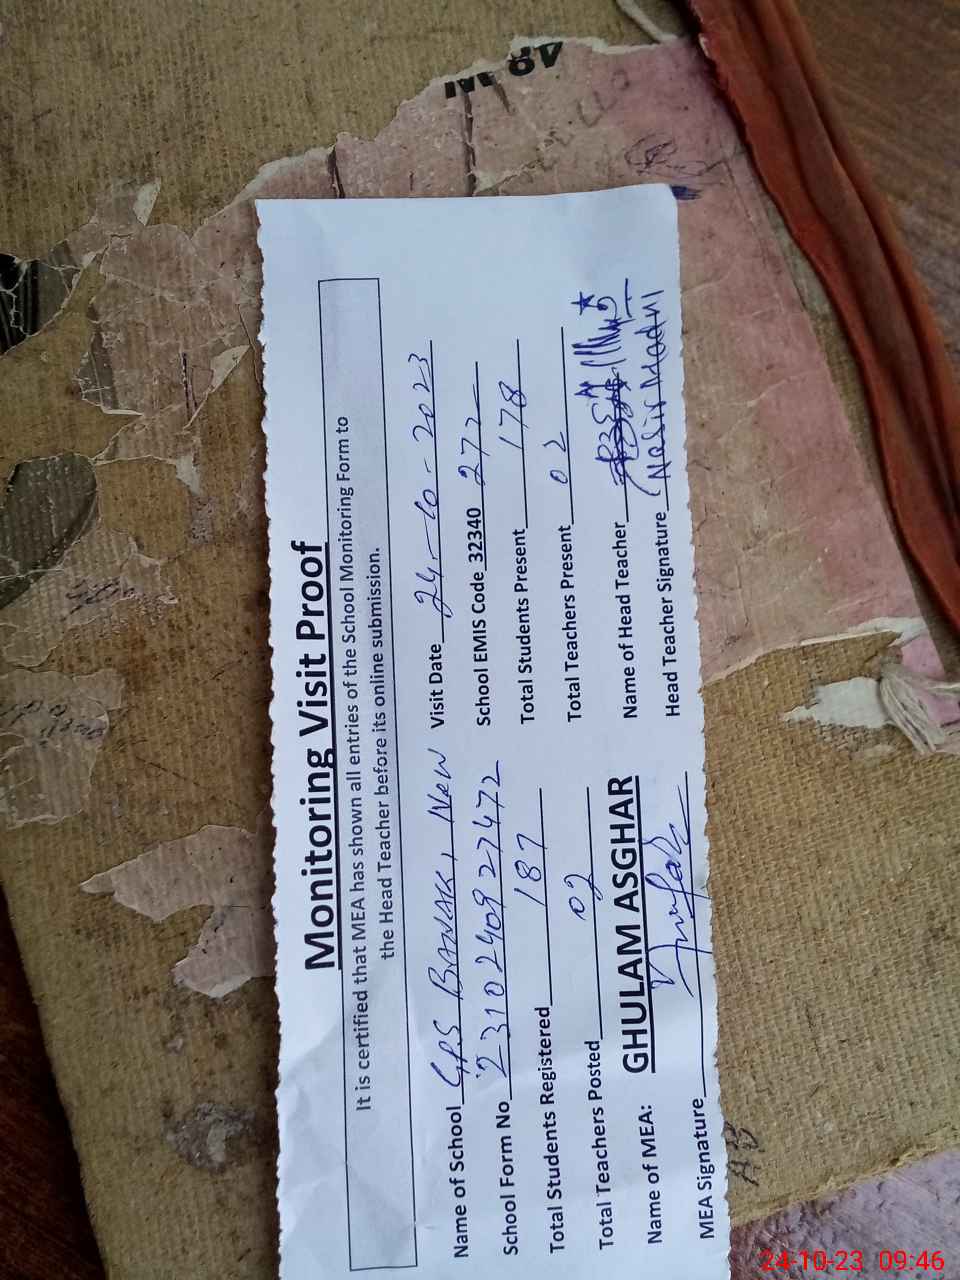 Monitoring Visit Proof
It is certified that MEA has shown all entries of the School Monitoring Form to
the Head Teacher before its online submission.
Name of School G.P.S BANAK, NEW Visit Date 24-10-2023
School Form No 2310240927472 School EMIS Code 32340 272
Total Students Registered 187 Total Students Present 178
Total Teachers Posted 02 Total Teachers Present 02
Name of MEA: GHULAM ASGHAR Name of Head Teacher
MEA Signature Head Teacher Signature Nasir Madni
AB
24-10-23 09:46